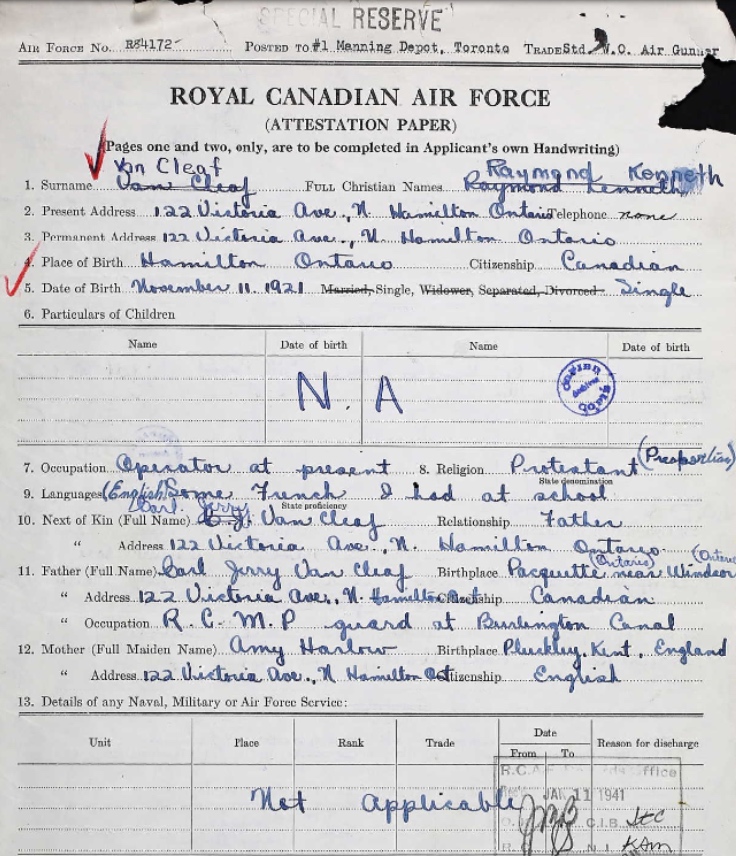 SPECIAL RESERVE
AIR FORCE NO. R84172 POSTED TO #1 Manning Depot, Toronto TRADE Std. W.O. Air Gunner
ROYAL CANADIAN AIR FORCE
(ATTESTATION PAPER)
(Pages one and two, only, are to be completed in Applicant's own Handwriting)
Van Cleaf Raymond Kenneth
1. Surname Van Cleaf FULL CHRISTIAN NAMES Raymond Kenneth
2. Present Address 122 Victoria Ave., N. Hamilton Ontario Telephone none
3. Permanent Address 122 Victoria Ave., N. Hamilton Ontario
4. Place of Birth Hamilton Ontario Citizenship Canadian
5. Date of Birth November 11. 1921 Married, Single, Widower, Separated, Divorced Single
6. Particulars of Children
Name Date of birth Name Date of birth
N. A
7. Occupation Operator at present 8. Religion Protestant
State denomination
9. Languages (English) Some French I had at school
Carl Jerry State proficiency
10. Next of Kin (Full Name) Van Cleaf Relationship Father
" Address 122 Victoria Ave., N. Hamilton Ontario
(Ontario)
11. Father (Full Name) Carl Jerry Van Cleaf Birthplace Pacquette near Windsor
" Address 122 Victoria Ave., N. Hamilton Ont Citizenship Canadian
" Occupation R.C.M.P guard at Burlington Canal
12. Mother (Full Maiden Name) Amy Harlow Birthplace Pluckley, Kent, England
" Address 122 Victoria Ave., N Hamilton Ont Citizenship English
13. Details of any Naval, Military or Air Force Service:
Unit Place Rank Trade Date From To Reason for discharge
Not Applicable
JAN 11 1941
C.I.B.